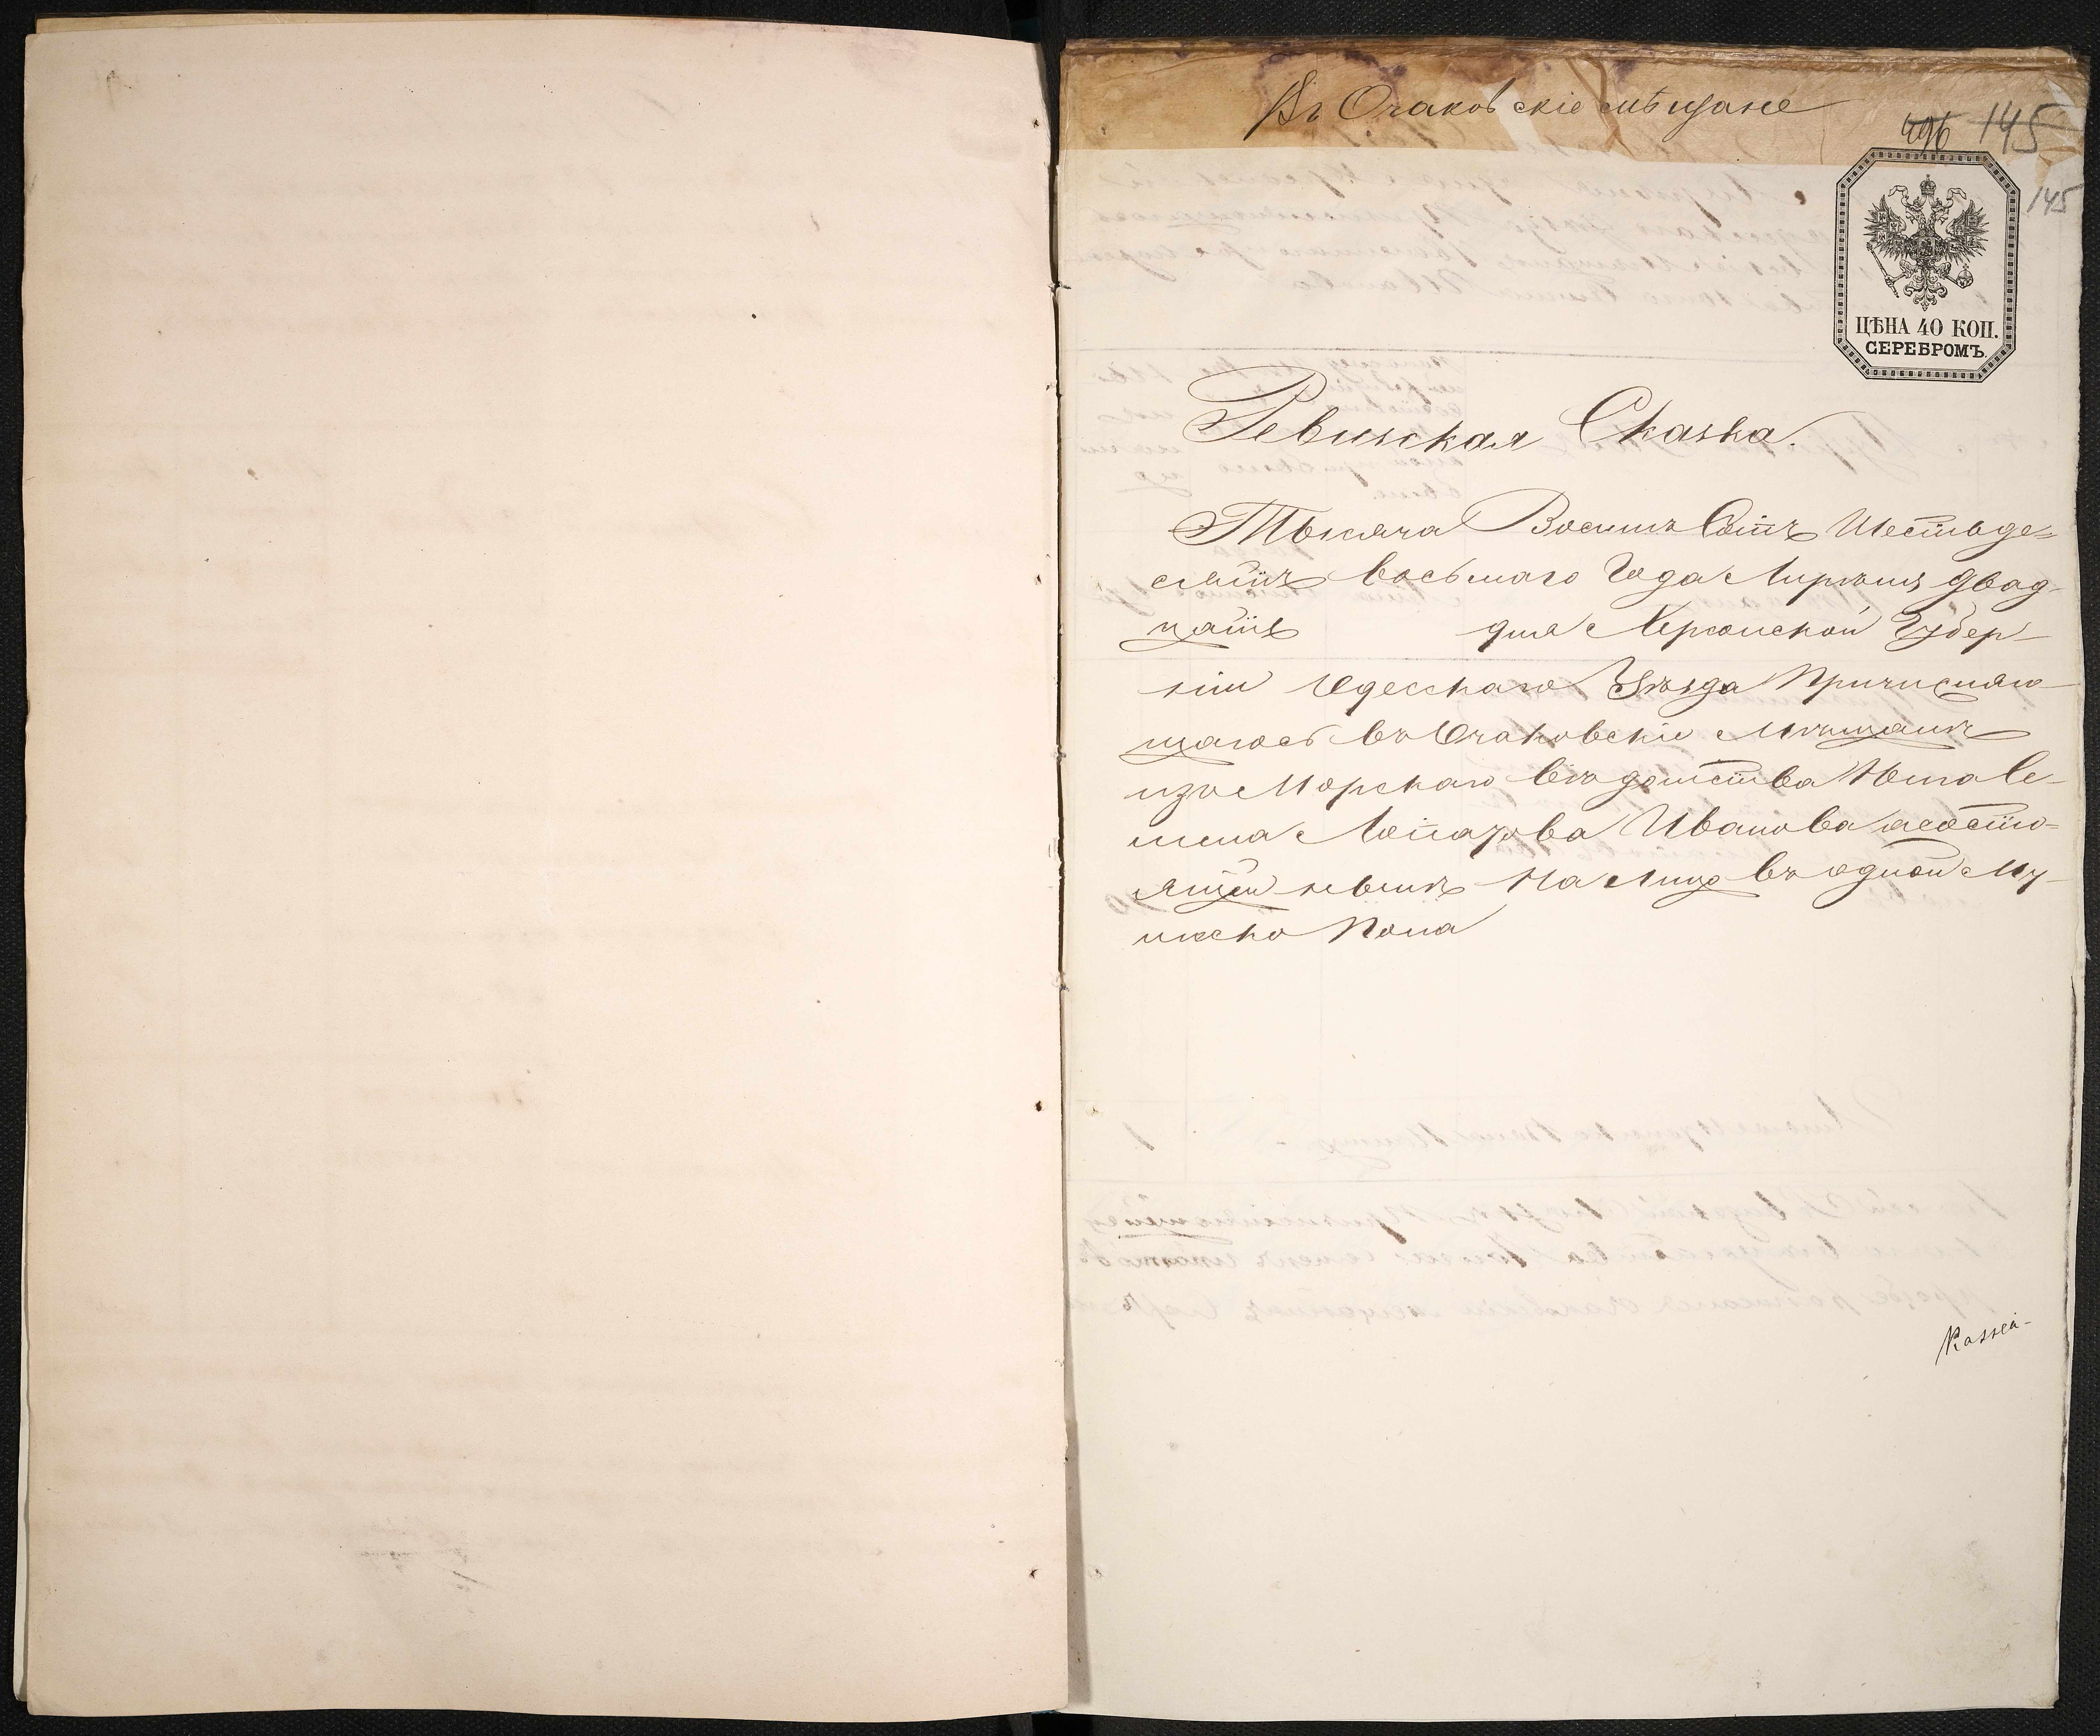 Въ Очаковскіе мѣщане
496 145
145
ЦѢНА 40 КОП.
СЕРЕБРОМЪ.
Ревизская Сказка.
Тысяча Восимъ Сотъ Шестьде=
сятъ восьмаго Года Апрѣля двад-
цать дня Херсонской Губер-
ніи Одесскаго Уѣзда Причисляю-
щагось въ Очаковскіе Мѣщанъ
изъ Морскаго вѣдомства
Иванова асосто=
ящей на лицо въ одной Му-
жска Пола